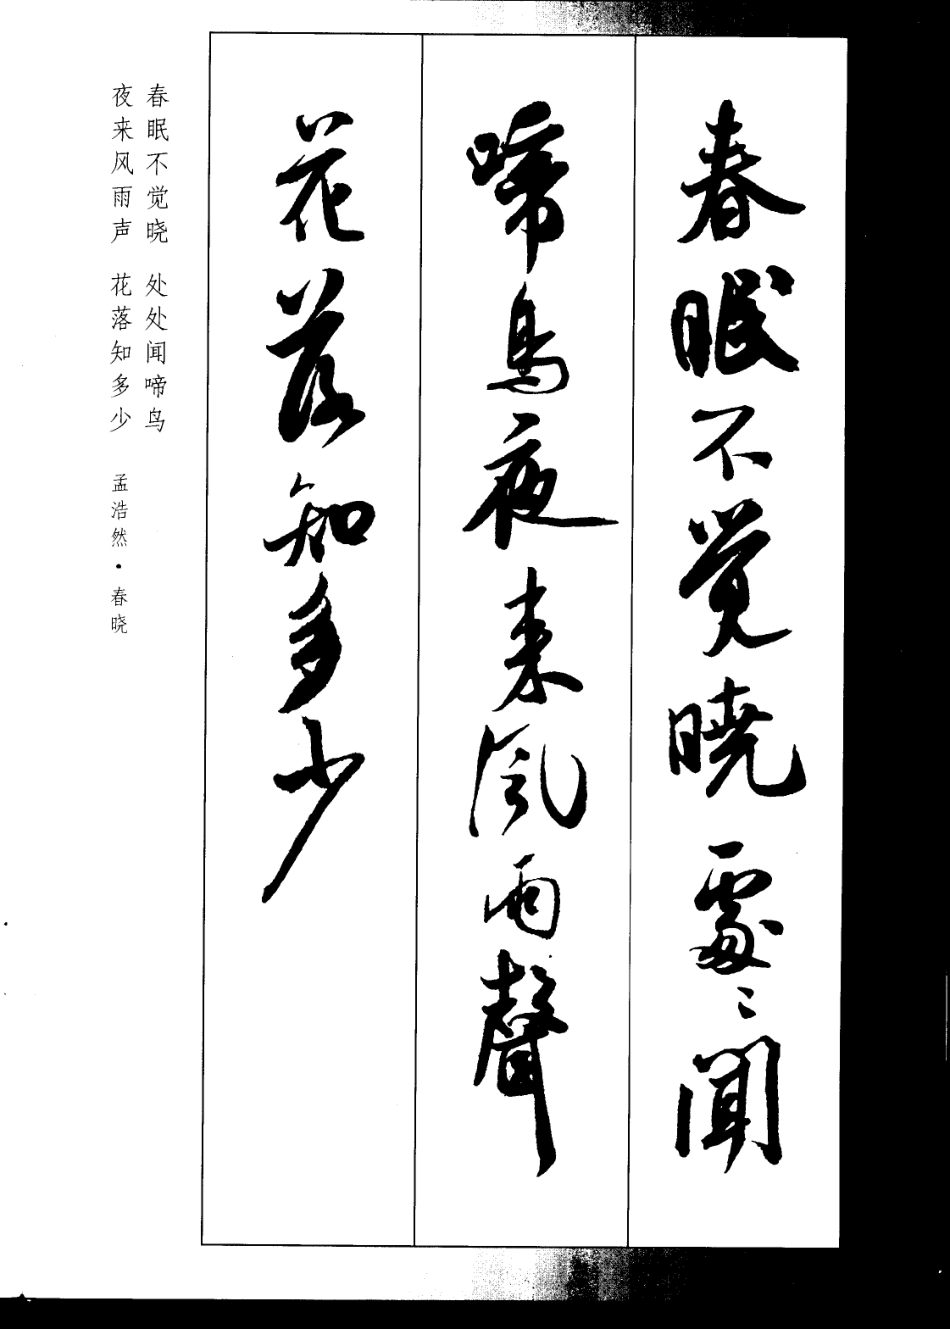 春眠不觉曉處〻聞
啼鳥夜来风雨聲
花落知多少
春眠不觉晓 处处闻啼鸟
夜来风雨声 花落知多少 孟浩然·春晓